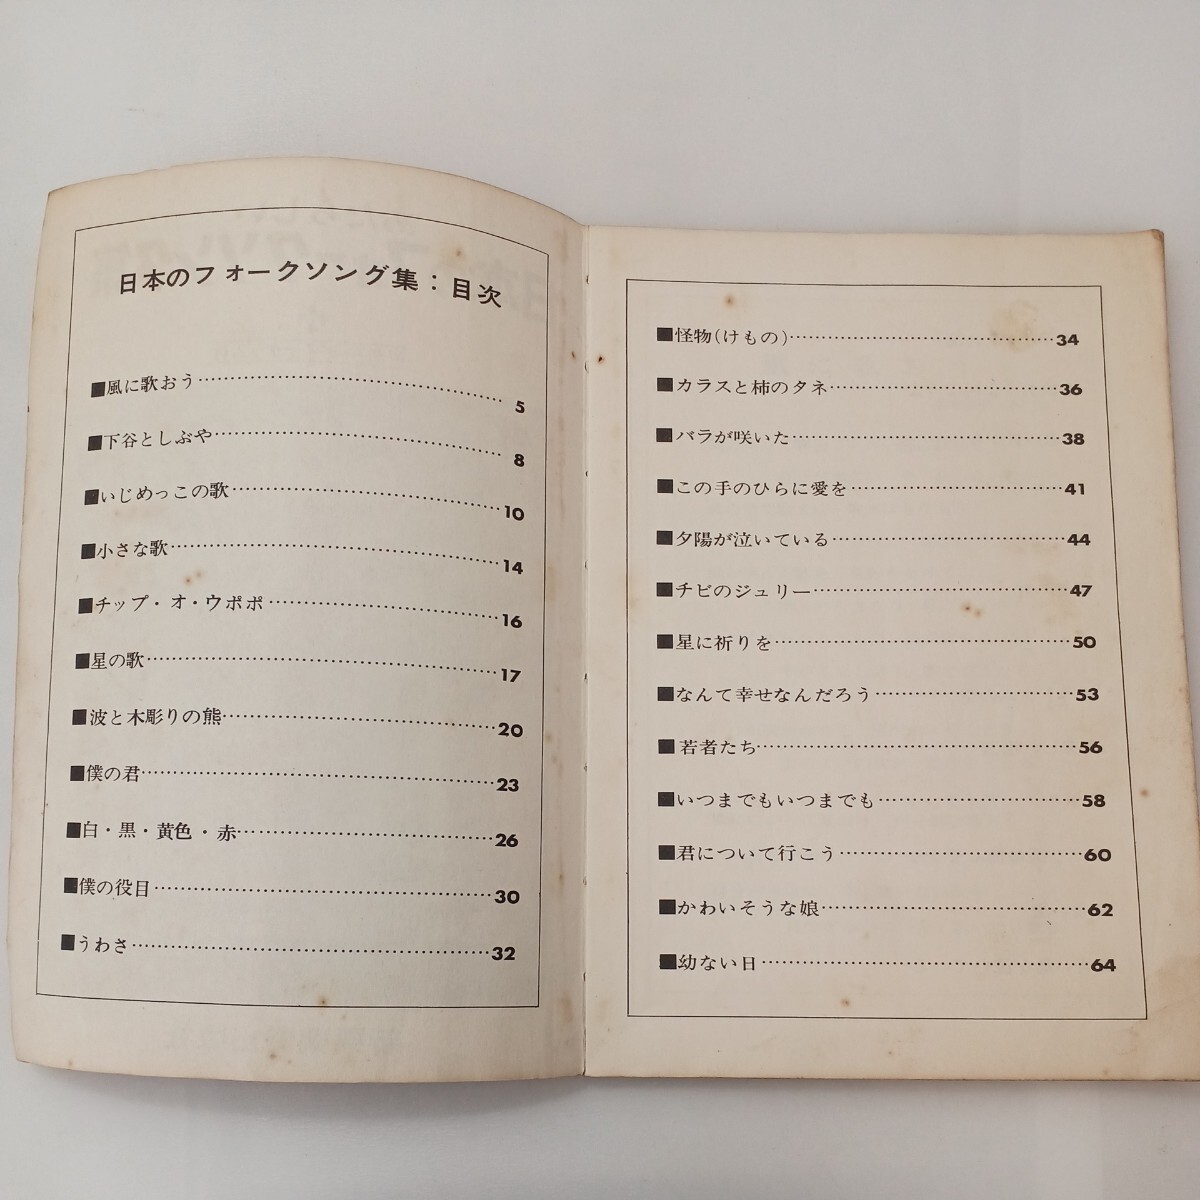 日本のフォークソング集：目次
■風に歌おう……………………………5
■下谷としぶや……………………………8
■いじめっこの歌……………………………10
■小さな歌……………………………14
■チップ・オ・ウポポ……………………………16
■星の歌……………………………17
■波と木彫りの熊……………………………20
■僕の君……………………………23
■白・黒・黄色・赤……………………………26
■僕の役目……………………………30
■うわさ……………………………32
■怪物(けもの)……………………………34
■カラスと柿のタネ……………………………36
■バラが咲いた……………………………38
■この手のひらに愛を……………………………41
■夕陽が泣いている……………………………44
■チビのジュリー……………………………47
■星に祈りを……………………………50
■なんて幸せなんだろう……………………………53
■若者たち……………………………56
■いつまでもいつまでも……………………………58
■君について行こう……………………………60
■かわいそうな娘……………………………62
■幼ない日……………………………64